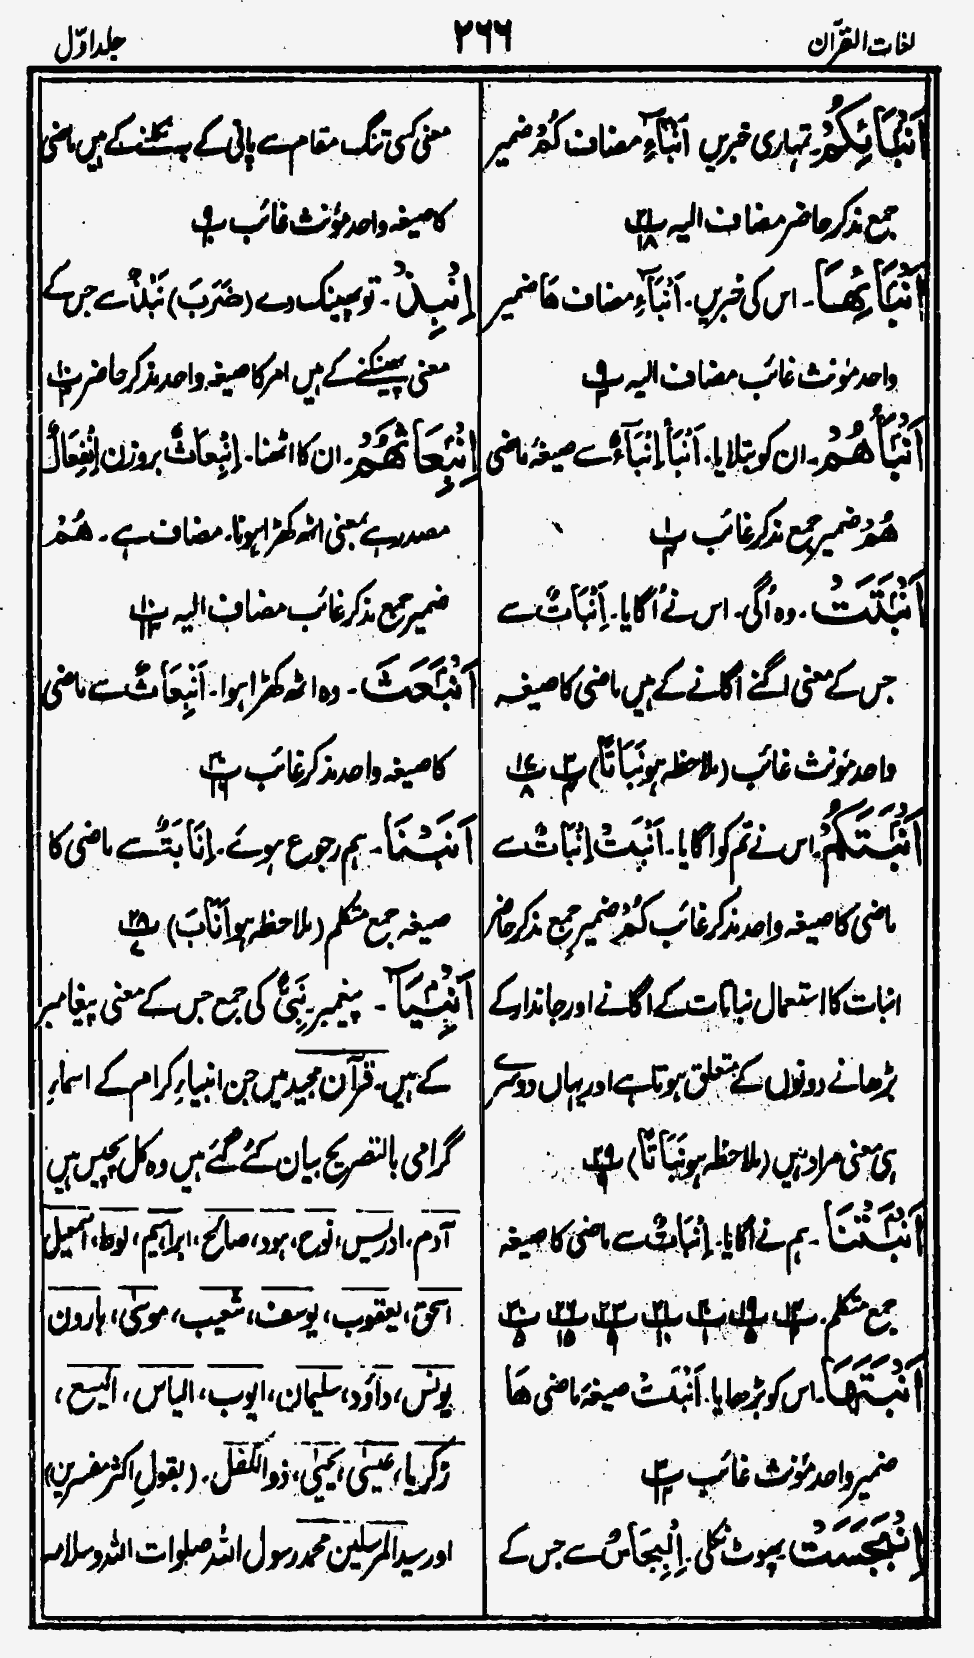 لغات القرآن
۲۶۶
جلد اوّل
اَنْبَآئِكُمْ۔ تمہاری خبریں اَنْبَآءِ مضاف كُمْ ضمیر
جمع مذکر حاضر مضاف الیہ پ ۲۱/۱۸
اَنْۢبَآئِهَا۔ اس کی خبریں۔ اَنْبَآءِ مضاف هَا ضمیر
واحد مؤنث غائب مضاف الیہ پ
اَنْۢبَأَهُمْ۔ ان کو بتلایا۔ اَنْبَأَ اِنْبَآءٌ سے صیغۂ ماضی
هُمْ ضمیر جمع مذکر غائب پ
اَنْۢبَتَتْ۔ وہ اُگی۔ اس نے اُگایا۔ اِنْبَاتٌ سے
جس کے معنی اگنے اگانے کے ہیں ماضی کا صیغہ
واحد مؤنث غائب (ملاحظہ ہو نَبَاتًا) پ پ ۱۷/۸
اَنْۢبَتَكُمْ۔ اس نے تم کو اگایا۔ اَنْبَتَ اِنْبَاتٌ سے
ماضی کا صیغہ واحد مذکر غائب كُمْ ضمیر جمع مذکر حاضر
انبات کا استعمال نباتات کے اگانے اور جاندار کے
بڑھانے دونوں کے متعلق ہوتا ہے اور یہاں دوسرے
ہی معنی مراد ہیں (ملاحظہ ہو نَبَاتًا) پ ۲۹/۹
اَنْۢبَتْنَا۔ ہم نے اگایا۔ اِنْبَاتٌ سے ماضی کا صیغہ
جمع متکلم۔ پ پ پ پ پ پ پ
اَنْۢبَتَهَا۔ اس کو بڑھایا۔ اَنْبَتَ صیغۂ ماضی هَا
ضمیر واحد مؤنث غائب پ ۳/۱۲
اِنْۢبَجَسَتْ پھوٹ نکلی۔ اِنْبِجَاسٌ سے جس کے
معنی کسی تنگ مقام سے پانی کے بہ نکلنے کے ہیں ماضی
کا صیغہ واحد مؤنث غائب پ
اِنْۢبِذْ۔ تو پھینک دے (ضَرَبَ) نَبْذٌ سے جس کے
معنی پھینکنے کے ہیں امر کا صیغہ واحد مذکر حاضر پ
اِنْۢبِعَاثَهُمْ۔ ان کا اٹھنا۔ اِنْبِعَاثٌ بروزن اِنْفِعَالٌ
مصدر ہے بمعنی اٹھ کھڑا ہونا۔ مضاف ہے۔ هُمْ
ضمیر جمع مذکر غائب مضاف الیہ پ ۱۰/۱۳
اَنْۢبَعَثَ۔ وہ اٹھ کھڑا ہوا۔ اَنْبِعَاثٌ سے ماضی
کا صیغہ واحد مذکر غائب پ ۳۰/۱۶
اَنَبْنَا۔ ہم رجوع ہوئے۔ اِنَابَتٌ سے ماضی کا
صیغہ جمع متکلم (ملاحظہ ہو اَنَابَ) پ ۲۸/۷
اَنْۢبِيَآءَ۔ پیغمبر۔ نَبِیٌّ کی جمع جس کے معنی پیغامبر
کے ہیں۔ قرآن مجید میں جن انبیاءِ کرام کے اسماءِ
گرامی بالتصریح بیان کئے گئے ہیں وہ کل پچیس ہیں
آدم، ادریس، نوح، ہود، صالح، ابراہیم، لوط، اسمٰعیل
اسحٰق، یعقوب، یوسف، شعیب، موسٰی، ہارون
یونس، داؤد، سلیمان، ایوب، الیاس، الیسع،
زکریا، عیسٰی، یحیٰی، ذوالکفل۔ (بقولِ اکثر مفسرین)
اور سید المرسلین محمد رسول اللہ صلوات اللہ وسلامہ